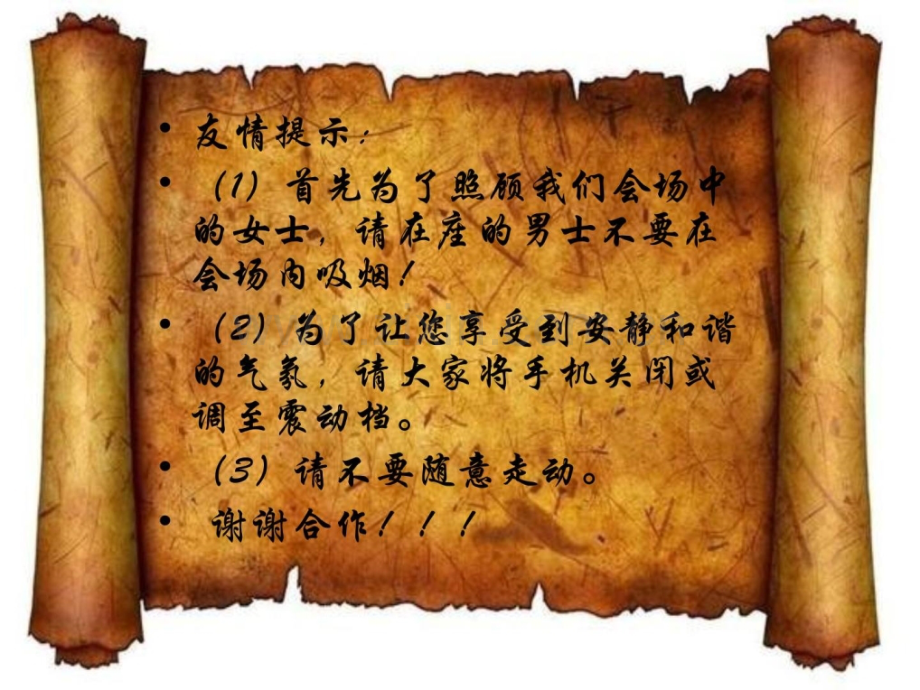 • 友情提示：
• （1）首先为了照顾我们会场中
的女士，请在座的男士不要在
会场内吸烟！
• （2）为了让您享受到安静和谐
的气氛，请大家将手机关闭或
调至震动档。
• （3）请不要随意走动。
• 谢谢合作！！！